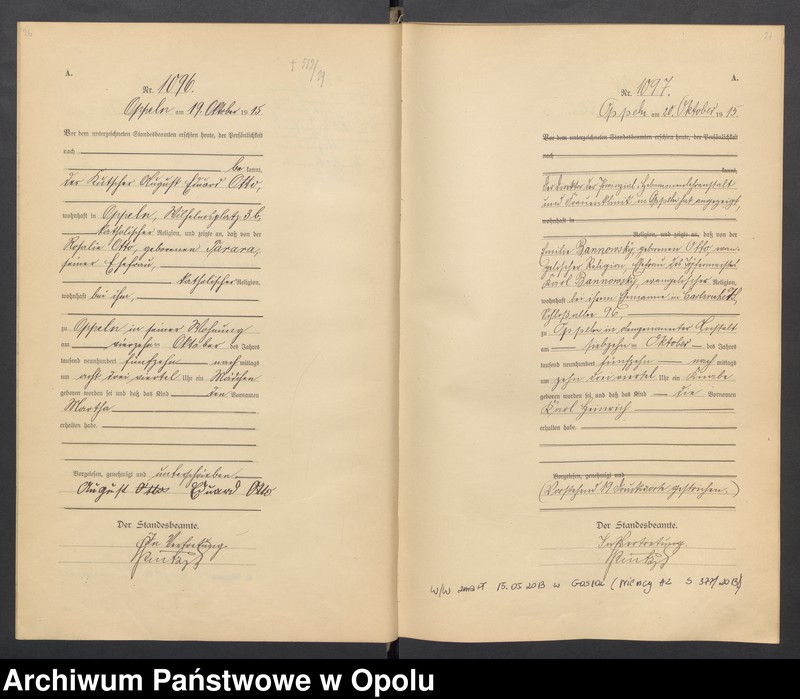 A.
Nr. 1096.
Oppeln am 19. Oktober 1915.
Vor dem unterzeichneten Standesbeamten erschien heute, der Persönlichkeit
nach
be kannt,
der Kutscher August Eduard Otto,
wohnhaft in Oppeln, Wilhelmsplatz 3 b,
katholischer Religion, und zeigte an, daß von der
Rosalie Otto, geborenen Sarara,
seiner Ehefrau,
katholischer Religion,
wohnhaft bei ihm,
zu Oppeln in seiner Wohnung
am vierzehn ten Oktober des Jahres
tausend neunhundert fünfzehn nach mittags
um acht drei viertel Uhr ein Mädchen
geboren worden sei und daß das Kind den Vornamen
Martha
erhalten habe.
Vorgelesen, genehmigt und unterschrieben
August Otto Eduard Otto
Der Standesbeamte.
In Vertretung.
A.
Nr. 1097.
Oppeln am 20. Oktober 1915.
Vor dem unterzeichneten Standesbeamten erschien heute, der Persönlichkeit
nach
kannt,
Der Direktor der Provinzial-Hebammenlehranstalt
und Frauenklinik in Oppeln hat angezeigt,
wohnhaft in
Religion, und zeigte an, daß von der
Emilie Bannowsky, geborenen Otto, evan-
gelischer Religion, Ehefrau des
Karl Bannowsky, evangelischer Religion,
wohnhaft bei ihrem Ehemanne in
Schloßallee 96,
zu Oppeln in dergenannter Anstalt
am siebzehn ten Oktober des Jahres
tausend neunhundert fünfzehn nach mittags
um zehn drei viertel Uhr ein Knabe
geboren worden sei, und daß das Kind die Vornamen
Karl Heinrich
erhalten habe.
Vorgelesen, genehmigt und
(Vorstehend 13 Druckworte gestrichen.)
Der Standesbeamte.
In Vertretung.
W/W zmarł 15.05.2013 w Goslar (Niemcy AZ S 377/2013)
Archiwum Państwowe w Opolu